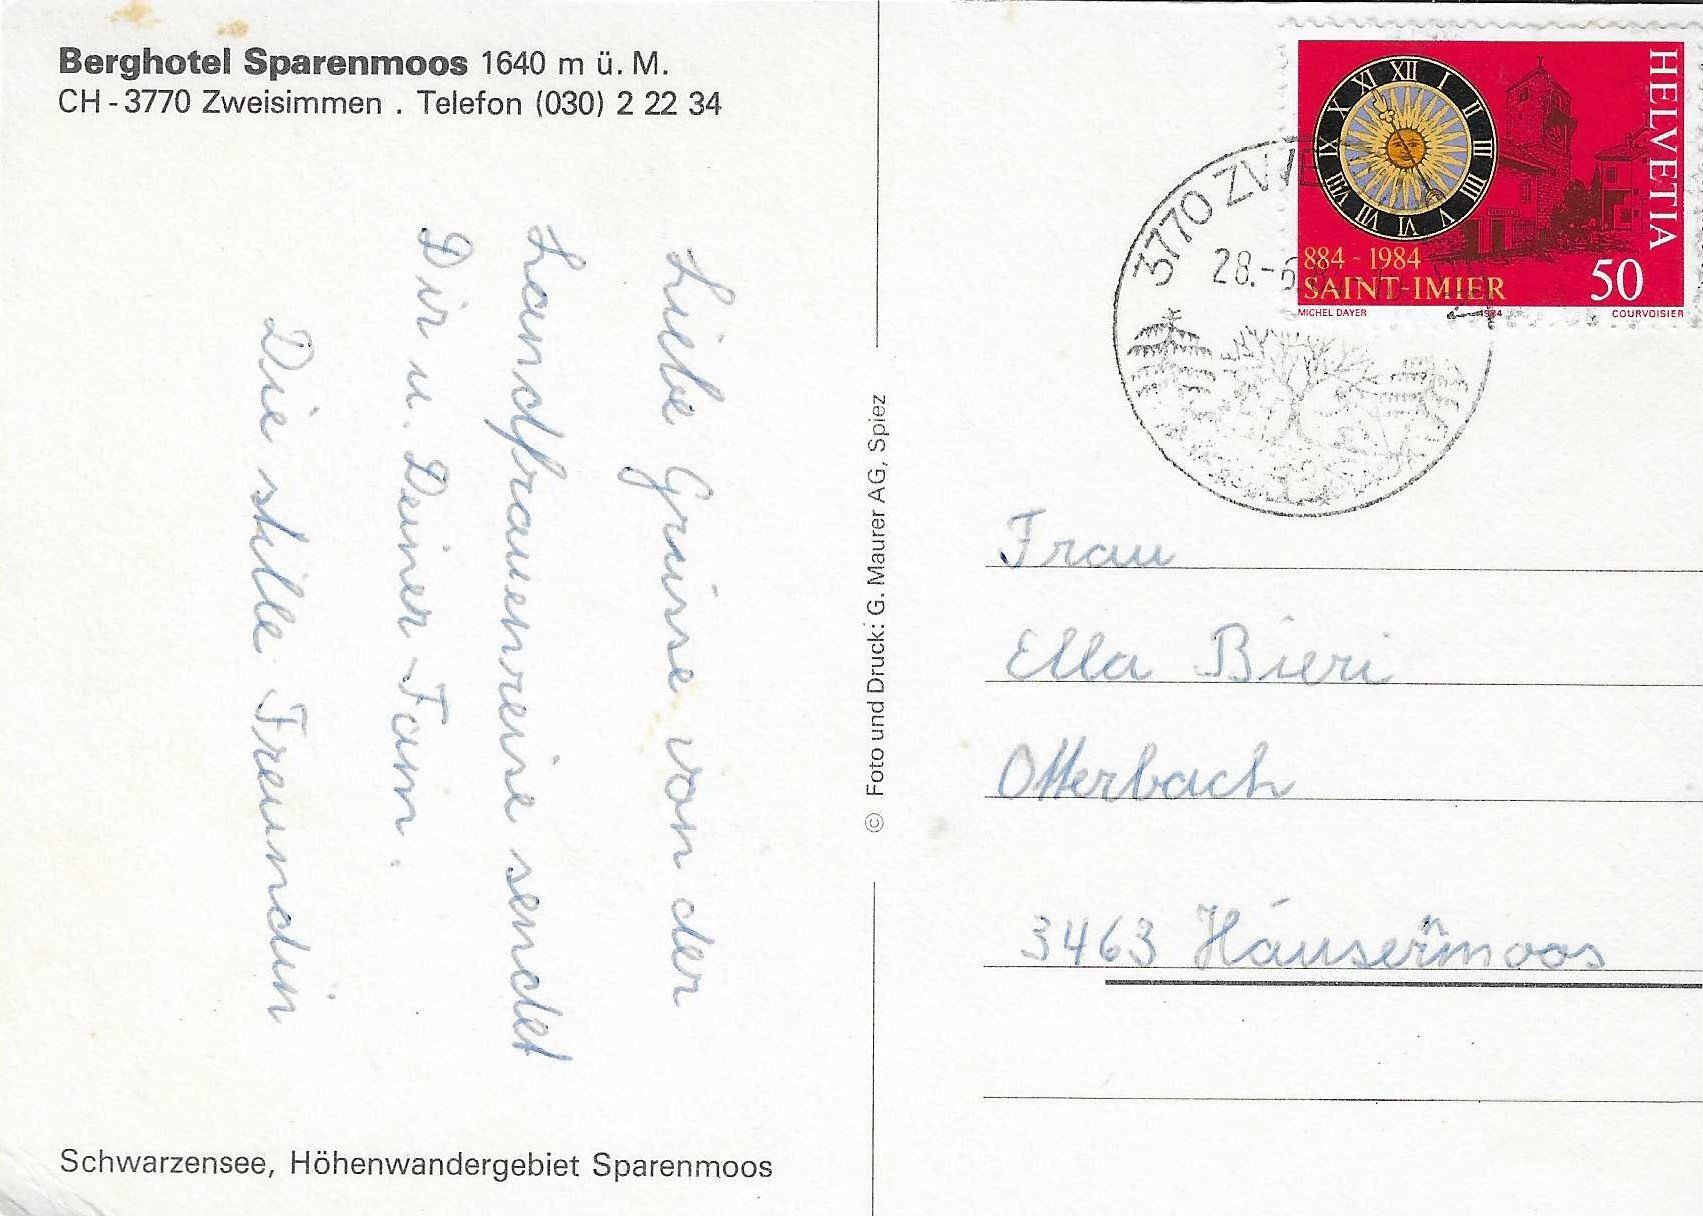 Berghotel Sparenmoos 1640 m ü. M.
CH-3770 Zweisimmen . Telefon (030) 2 22 34
Liebe Grüsse von der
Landfrauenreise sendet
Dir u. Deiner Fam.
Die stille Freundin
Schwarzensee, Höhenwandergebiet Sparenmoos
© Foto und Druck: G. Maurer AG, Spiez
HELVETIA
XII I II III IIII V VI VII VIII IX X XI
884-1984
SAINT-IMIER
50
MICHEL DAYER 1984 COURVOISIER
3770 ZWEI
28.-6.
Frau
Ella Bieri
Otterbach
3463 Häusernmoos